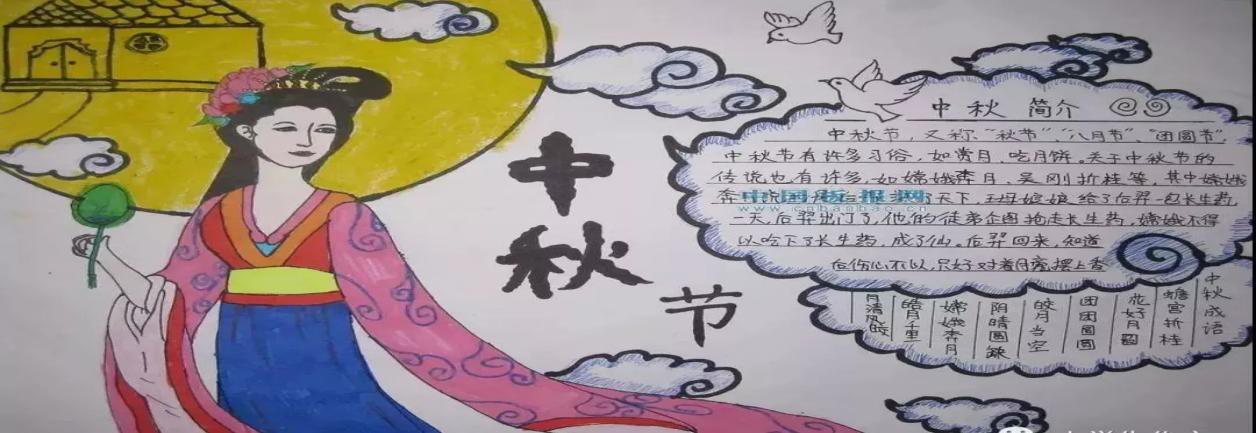 中秋节
中秋 简介
中秋节，又称“秋节”、“八月节”、“团圆节”，
中秋节有许多习俗，如赏月、吃月饼。关于中秋节的
传说也有许多，如嫦娥奔月，吴刚折桂等，其中嫦娥
奔 天下，王母娘娘给了后羿一包长生药，
一天，后羿出门了，他的徒弟企图抢走长生药，嫦娥不得
以吃下了长生药，成了仙。后羿回来，知道
后伤心不以，只好对着月亮，摆上香
中国板报网
www.cnbanbao.cn
中秋成语
蟾宫折桂
花好月圆
团团圆圆
皎月当空
阴晴圆缺
嫦娥奔月
皓月千里
月清风皎